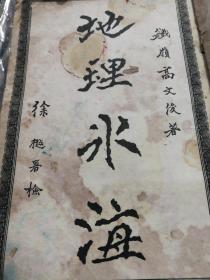 鐵嶺高文俊著
地理水海
徐 署檢